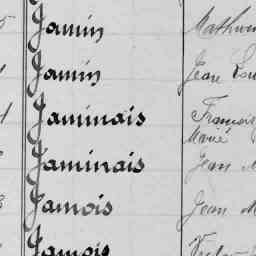 Jamin
Jamin Jean
Jaminais François
Marie
Jaminais Jean M
Jamois Jean M
Jamois